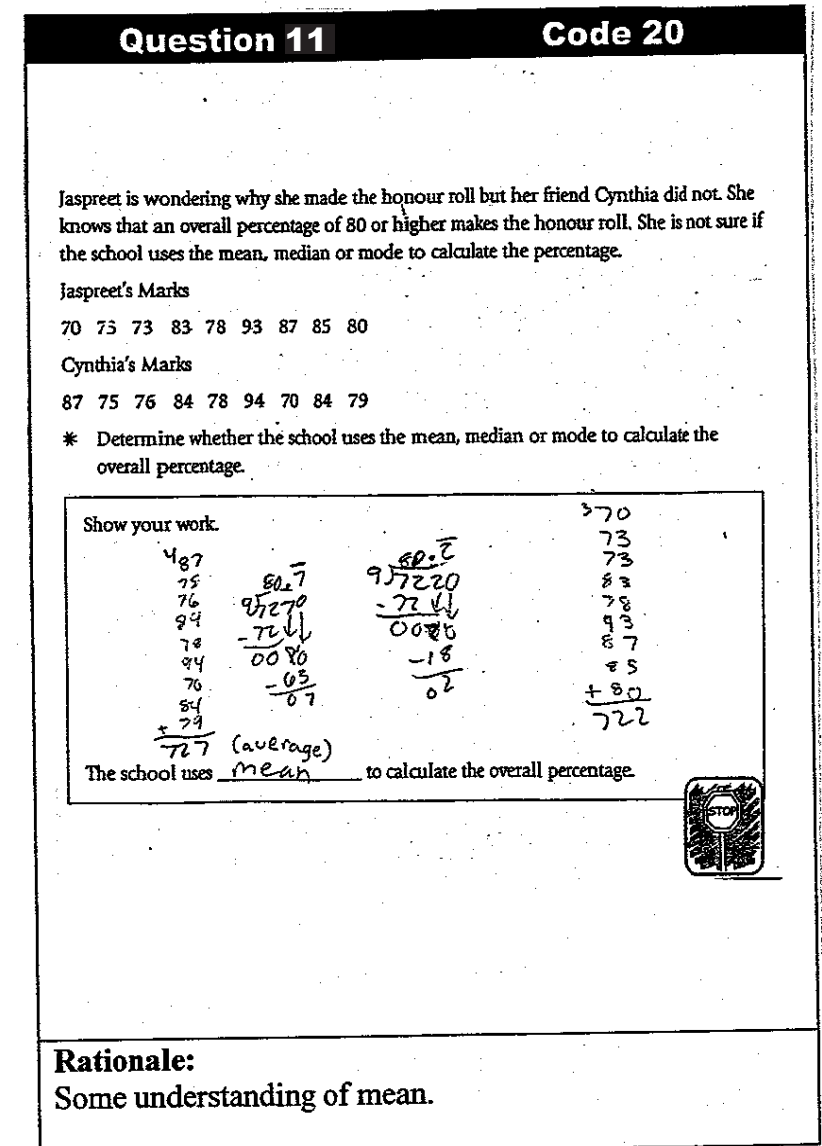 Question 11 Code 20
Jaspreet is wondering why she made the honour roll but her friend Cynthia did not. She
knows that an overall percentage of 80 or higher makes the honour roll. She is not sure if
the school uses the mean, median or mode to calculate the percentage.
Jaspreet's Marks
70 73 73 83 78 93 87 85 80
Cynthia's Marks
87 75 76 84 78 94 70 84 79
* Determine whether the school uses the mean, median or mode to calculate the
overall percentage.
Show your work.
4
87
75
76
84
78
94
70
84
+ 79
727
80.7
9)7270
- 72
0070
- 63
07
80.2
9)7220
- 72
0020
-18
02
3
70
73
73
83
78
93
87
85
+ 80
722
(average)
The school uses mean to calculate the overall percentage.
STOP
Rationale:
Some understanding of mean.